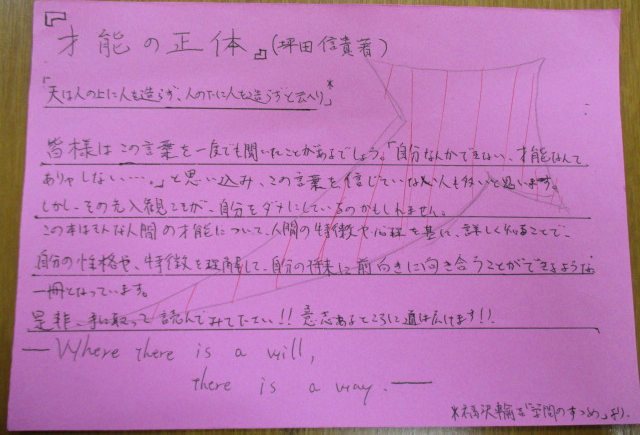 『才能の正体』(坪田信貴著)
「天は人の上に人を造らず、人の下に人を造らずと云へり」*
皆様はこの言葉を一度でも聞いたことがあるでしょう。「自分なんかできない、才能なんて
ありゃしない…。」と思い込み、この言葉を信じていない人も多いと思います。
しかし、その先入観こそが、自分をダメにしているのかもしれません。
この本はそんな人間の才能について、人間の特徴や心理を基に、詳しく知ることで、
自分の性格や、特徴を理解して、自分の将来に前向きに向き合うことができるような
一冊となっています。
是非、手に取って読んでみてください!!意志あるところに道は広けます!!
— Where there is a will,
there is a way. —
*福沢輸吉「学問のすゝめ」より.